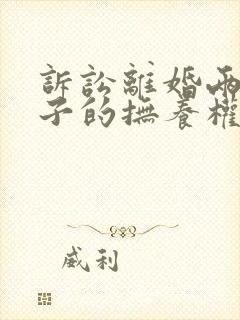 訴訟離婚兩
子的撫養權
威利